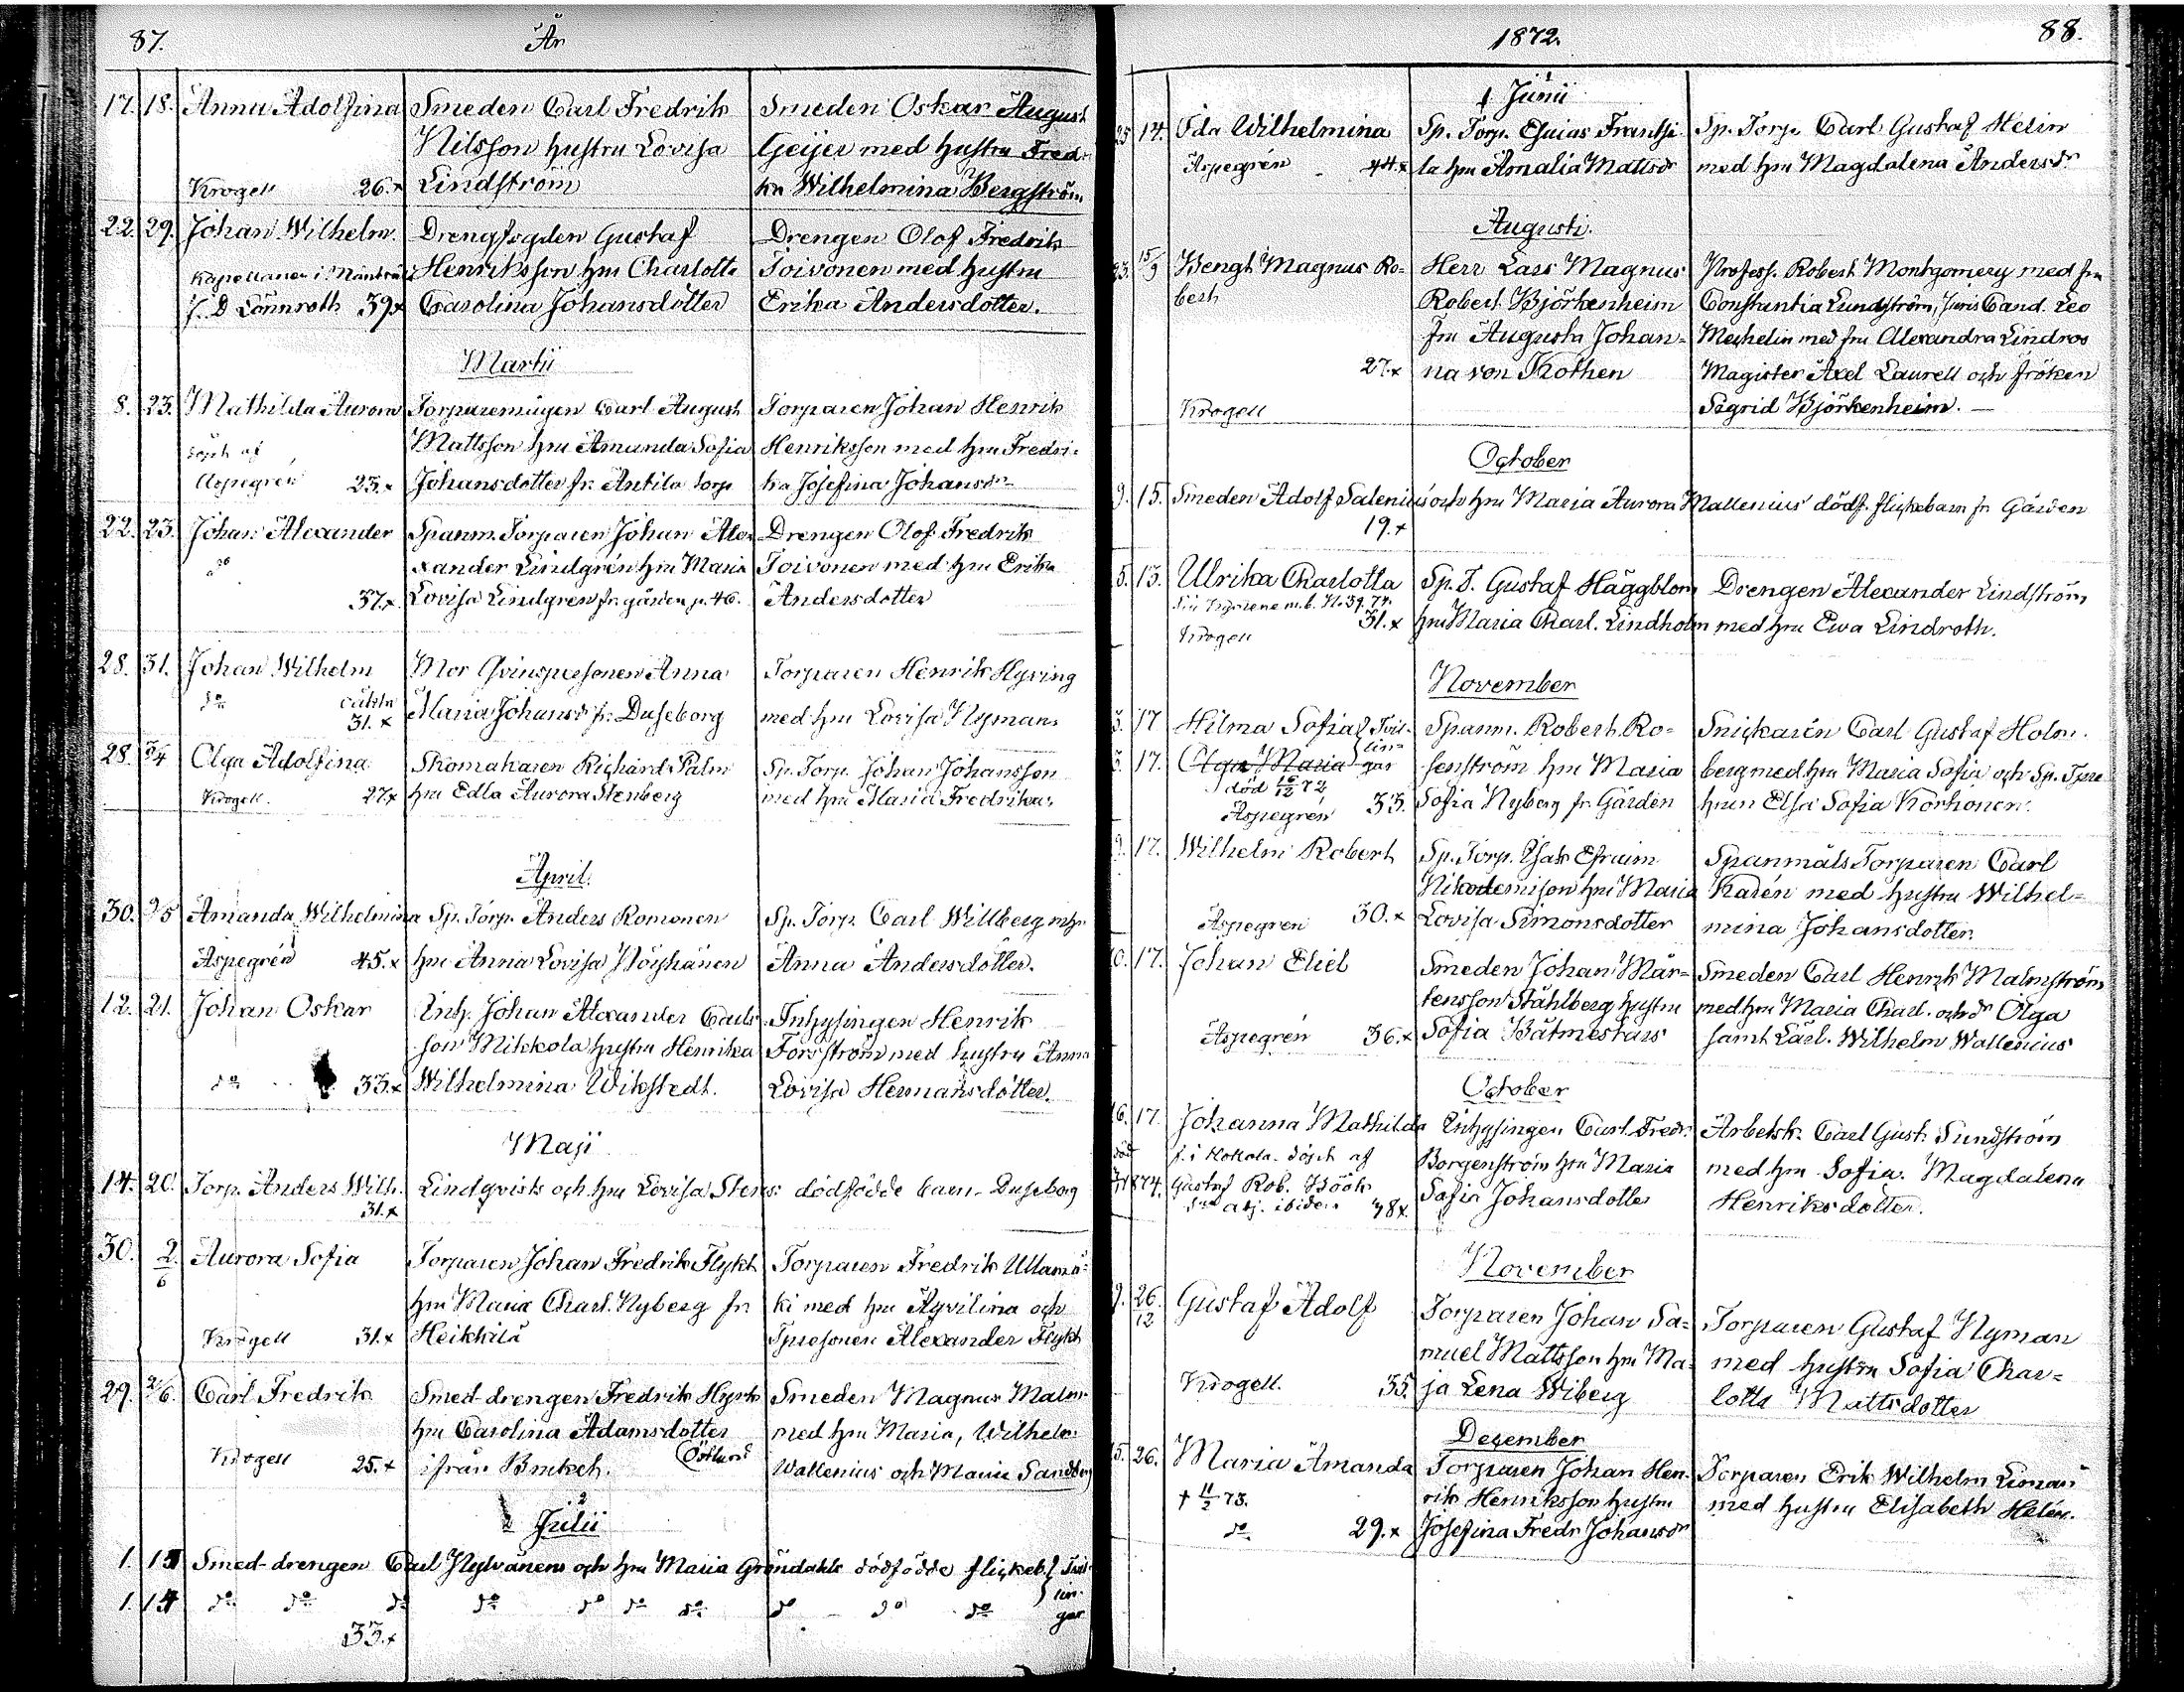 87. År
17. 18. Anna Adolfina Smeden Carl Fredrik Smeden Oskar August
Nilsson hustru Lovisa Geijer med hustru Fred-
Krogell 26.x Lindström Wilhelmina Bergström
22. 29. Johan Wilhelm. Drengfogden Gustaf Drengen Olof Fredrik
Kapellanen i Henriksson hru Charlotta Toivonen med hustru
J. D Lönnroth 39x Carolina Johansdotter Erika Andersdotter.
Martii
8. 23. Mathilda Aurora Torparemågen Carl August Torparen Johan Henrik
döpt af Mattsson hru Amanda Sofia Henriksson med hru Fredri-
Aspegrén 23.x Johansdotter fr. Antila torp ka Josefina Johansdr
22. 23. Johan Alexander Spanm. Torparen Johan Alex Drengen Olof Fredrik
do xander Lindgrén hru Maria Toivonen med hru Erika
37.x Lovisa Lindgren fr. gården p. 46. Andersdotter
28. 31. Johan Wilhelm Mor Qvinspersonen Anna Torparen Henrik Hyring
do oäkta
31.x Maria Johansd. fr. Duseborg med hru Lovisa Nyman
28. 3/4 Olga Adolfina Skomakaren Richard Palm Sp. Torp. Johan Johansson
Krogell. 27x hru Edla Aurora Stenberg med hru Maria Fredrika
April.
30. 9/5 Amanda Wilhelmina Sp. Torp. Anders Romonen Sp. Torp. Carl Willberg m hr
Aspegrén 45.x hru Anna Lovisa Anna Andersdotter.
12. 21. Johan Oskar Inh. Johan Alexander Carls- Inhysingen Henrik
son Mikkola hustru Henrika Forsström med hustru Anna
do 33.x Wilhelmina Wikstedt. Lovisa Hermansdotter.
Maji
14. 20. Torp. Anders Wilh. Lindqvists och hru Lovisa dödfödde barn. Duseborg
31.x
30. 2/6 Aurora Sofia Torparen Johan Fredrik Flykt Torparen Fredrik Ullamä-
hru Maria Charl. Nyberg fr. ki med hru Agvilina och
Krogell 31.x Heikkilä Alexander Flykt
29. 2/6. Carl Fredrik Smed-drengen Fredrik Smeden Magnus Malm-
hru Carolina Adamsdotter med hru Maria, Wilhelm
Krogell 25.x ifrån Bruket. Östlund Wallenius och Maria Sandberg
Julii
1. 15 Smed-drengen Carl och hru Maria Gröndahls dödfödde flickeb. Tvil-
1. 15 do do do do do do do do do do lin-
gar
33.x
1872. 88.
Junii
25 14. Ida Wilhelmina Sp. Torp. Esaias Frantsi- Sp. Torp. Carl Gustaf Helin
Aspegrén 44.x la hru Amalia Mattsdr med hru Magdalena Andersdr
Augusti.
23. 15/9 Bengt Magnus Ro- Herr Lars Magnus Profess. Robert Montgomery med fru
bert Robert Björkenheim Constantia Lundström, Juris Cand. Leo
fru Augusta Johan- Mechelin med fru Alexandra Lindroos
27.x na von Kothen Magister Axel Laurell och fröken
Krogell Sigrid Björkenheim. —
October
9. 15. Smeden Adolf Salenius och hru Maria Aurora Wallenius' dödf. flickebarn fr Gården
19.x
5. 13. Ulrika Charlotta Sp. T. Gustaf Häggblom Drengen Alexander Lindström
m.b. No 39. 74.
Krogell 31.x hru Maria Charl. Lindholm med hru Ewa Lindroth.
November
5. 17 Hilma Sofia Tvil- Spanm. Robert Ro- Snickarén Carl Gustaf Holm-
5. 17. Olga Maria lin-gar senström hru Maria berg med hru Maria Sofia och Sp. Torp.
död 10/12 72
Aspegrén 33. Sofia Nyberg fr. Gården hrun Elsa Sofia Korhonen.
9. 17. Wilhelm Robert Sp. Torp. Isak Efraim Spanmåls Torparen Carl
Nikodemison hru Maria Karén med hustru Wilhel-
Aspegren 30.x Lovisa Simonsdotter mina Johansdotter.
10. 17. Johan Eliel Smeden Johan Mår- Smeden Carl Henrik Malmström
tensson Ståhlberg hustru med hru Maria Charl. och dr Olga
Aspegrén 36.x Sofia Båtmestars samt Lärl. Wilhelm Wallenius
October
16. 17. Johanna Mathilda Inhysingen Carl Fredr. Arbetsk. Carl Gust. Sundström
död f. i Hokola. döpt af Borgenström hru Maria med hru Sofia Magdalena
1874. Gustaf Rob. Böök Sofia Johansdotter Henriksdotter.
adj. ibidem 38x.
November
9. 26/12 Gustaf Adolf Torparen Johan Sa- Torparen Gustaf Nyman
muel Mattsson hru Ma- med hustru Sofia Char-
Krogell. 35. ja Lena Wiberg lotta Mattsdotter
December
15. 26. Maria Amanda Torparen Johan Hen- Torparen Erik Wilhelm Liman
† 11/2 73. rik Henriksson hustru med hustru Elisabeth Helén.
do 29.x Josefina Fredr. Johansdr